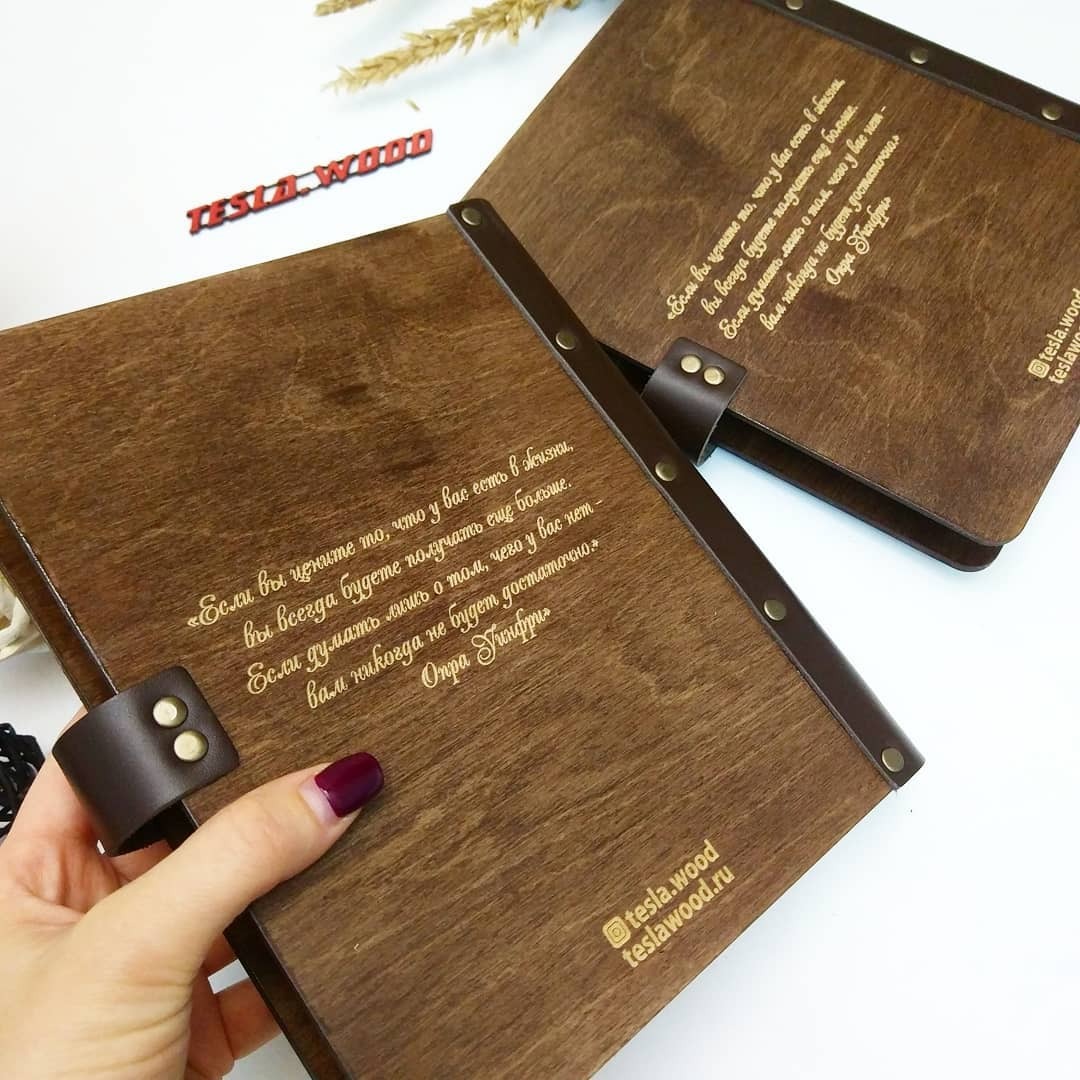 TESLA.WOOD
«Если вы цените то, что у вас есть в жизни,
вы всегда будете получать еще больше.
Если думать лишь о том, чего у вас нет -
вам никогда не будет достаточно.»
Опра Уинфри»
tesla.wood
teslawood.ru
«Если вы цените то, что у вас есть в жизни,
вы всегда будете получать еще больше.
Если думать лишь о том, чего у вас нет -
вам никогда не будет достаточно.»
Опра Уинфри»
tesla.wood
teslawo